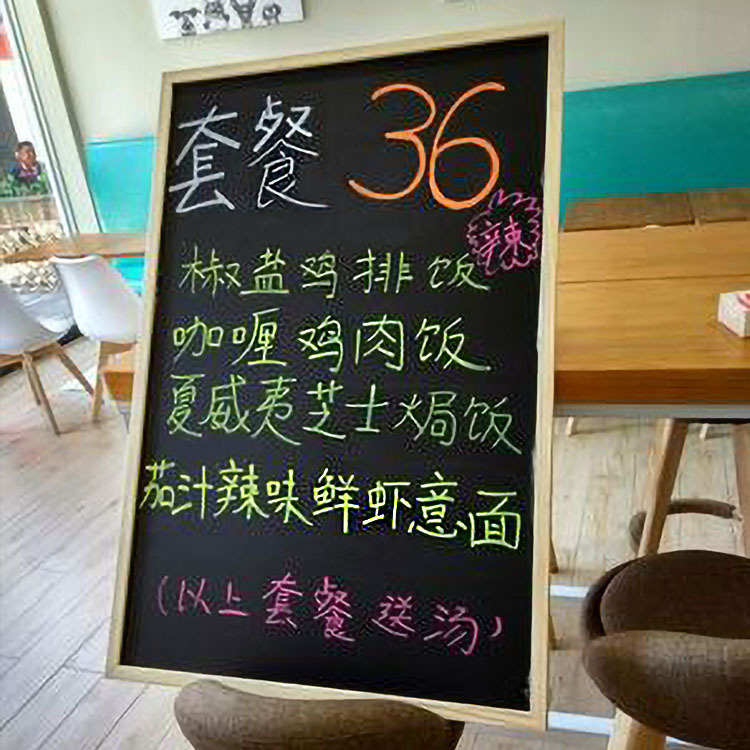 套餐 36
辣
椒盐鸡排饭
咖喱鸡肉饭
夏威夷芝士焗饭
茄汁辣味鲜虾意面
(以上套餐送汤)